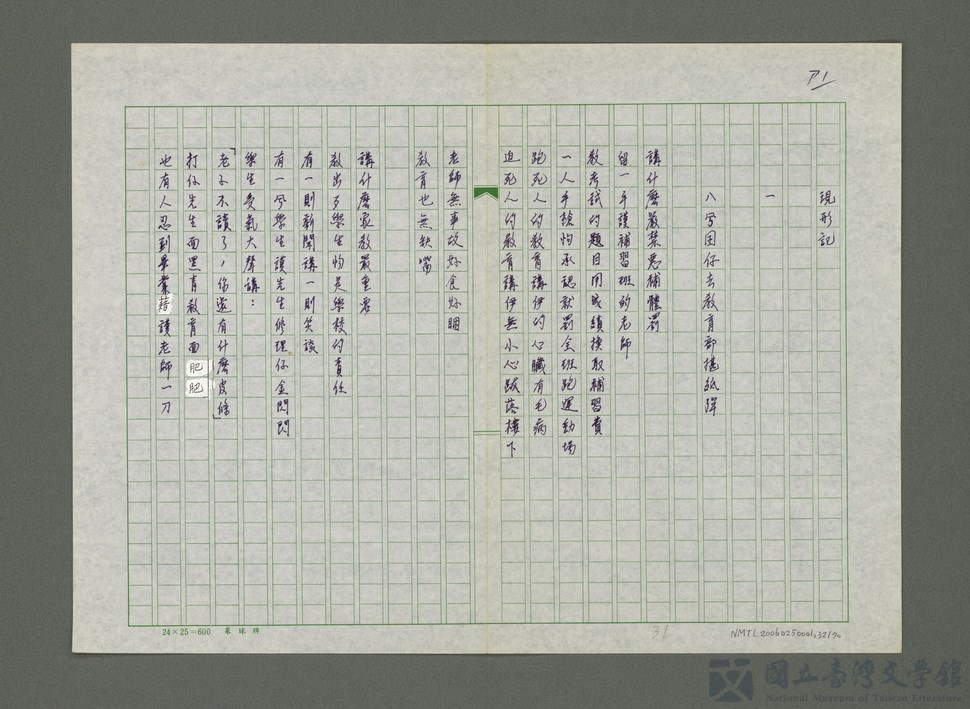 P1
現形記
一
八爷囝仔去教育部擲紙彈
講什麼嚴禁惡補體罰
留一手護補習班的老師
教考試的題目用成績換取補習費
一人手槍怕承認就罰全班跑運動場
跑死人的教育講伊的心臟有毛病
迫死人的教育講伊無小心跋落樓下
老師無事故好食好睏
教育也無缺嘴
講什麼家教嚴重者
教出歹學生怕是學校的責任
有一則新聞講一則笑談
有一爷學生讀先生修理仔金閃閃
學生受氣大聲講：
「老子不讀了，你還有什麼皮條」
打仔先生面黑青教育面肥肥
也有人忍到畢業藉讀老師一刀
24×25=600
31
NMTL20060250001,32/70
國立臺灣文學館
National Museum of Taiwan Literature